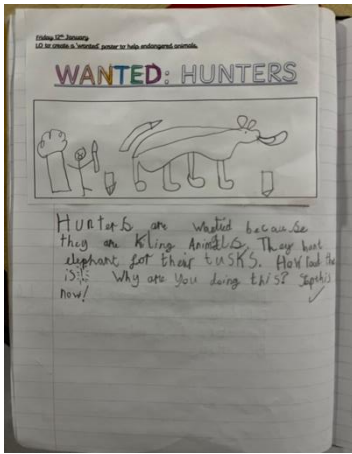 Friday 12th January
LO to create a 'wanted' poster to help endangered animals.
WANTED: HUNTERS
Hunters are wanted because
they are Kling Animals. They hont
elephant for their tusks. How bad
is Why are you doing this? Stop this
now!